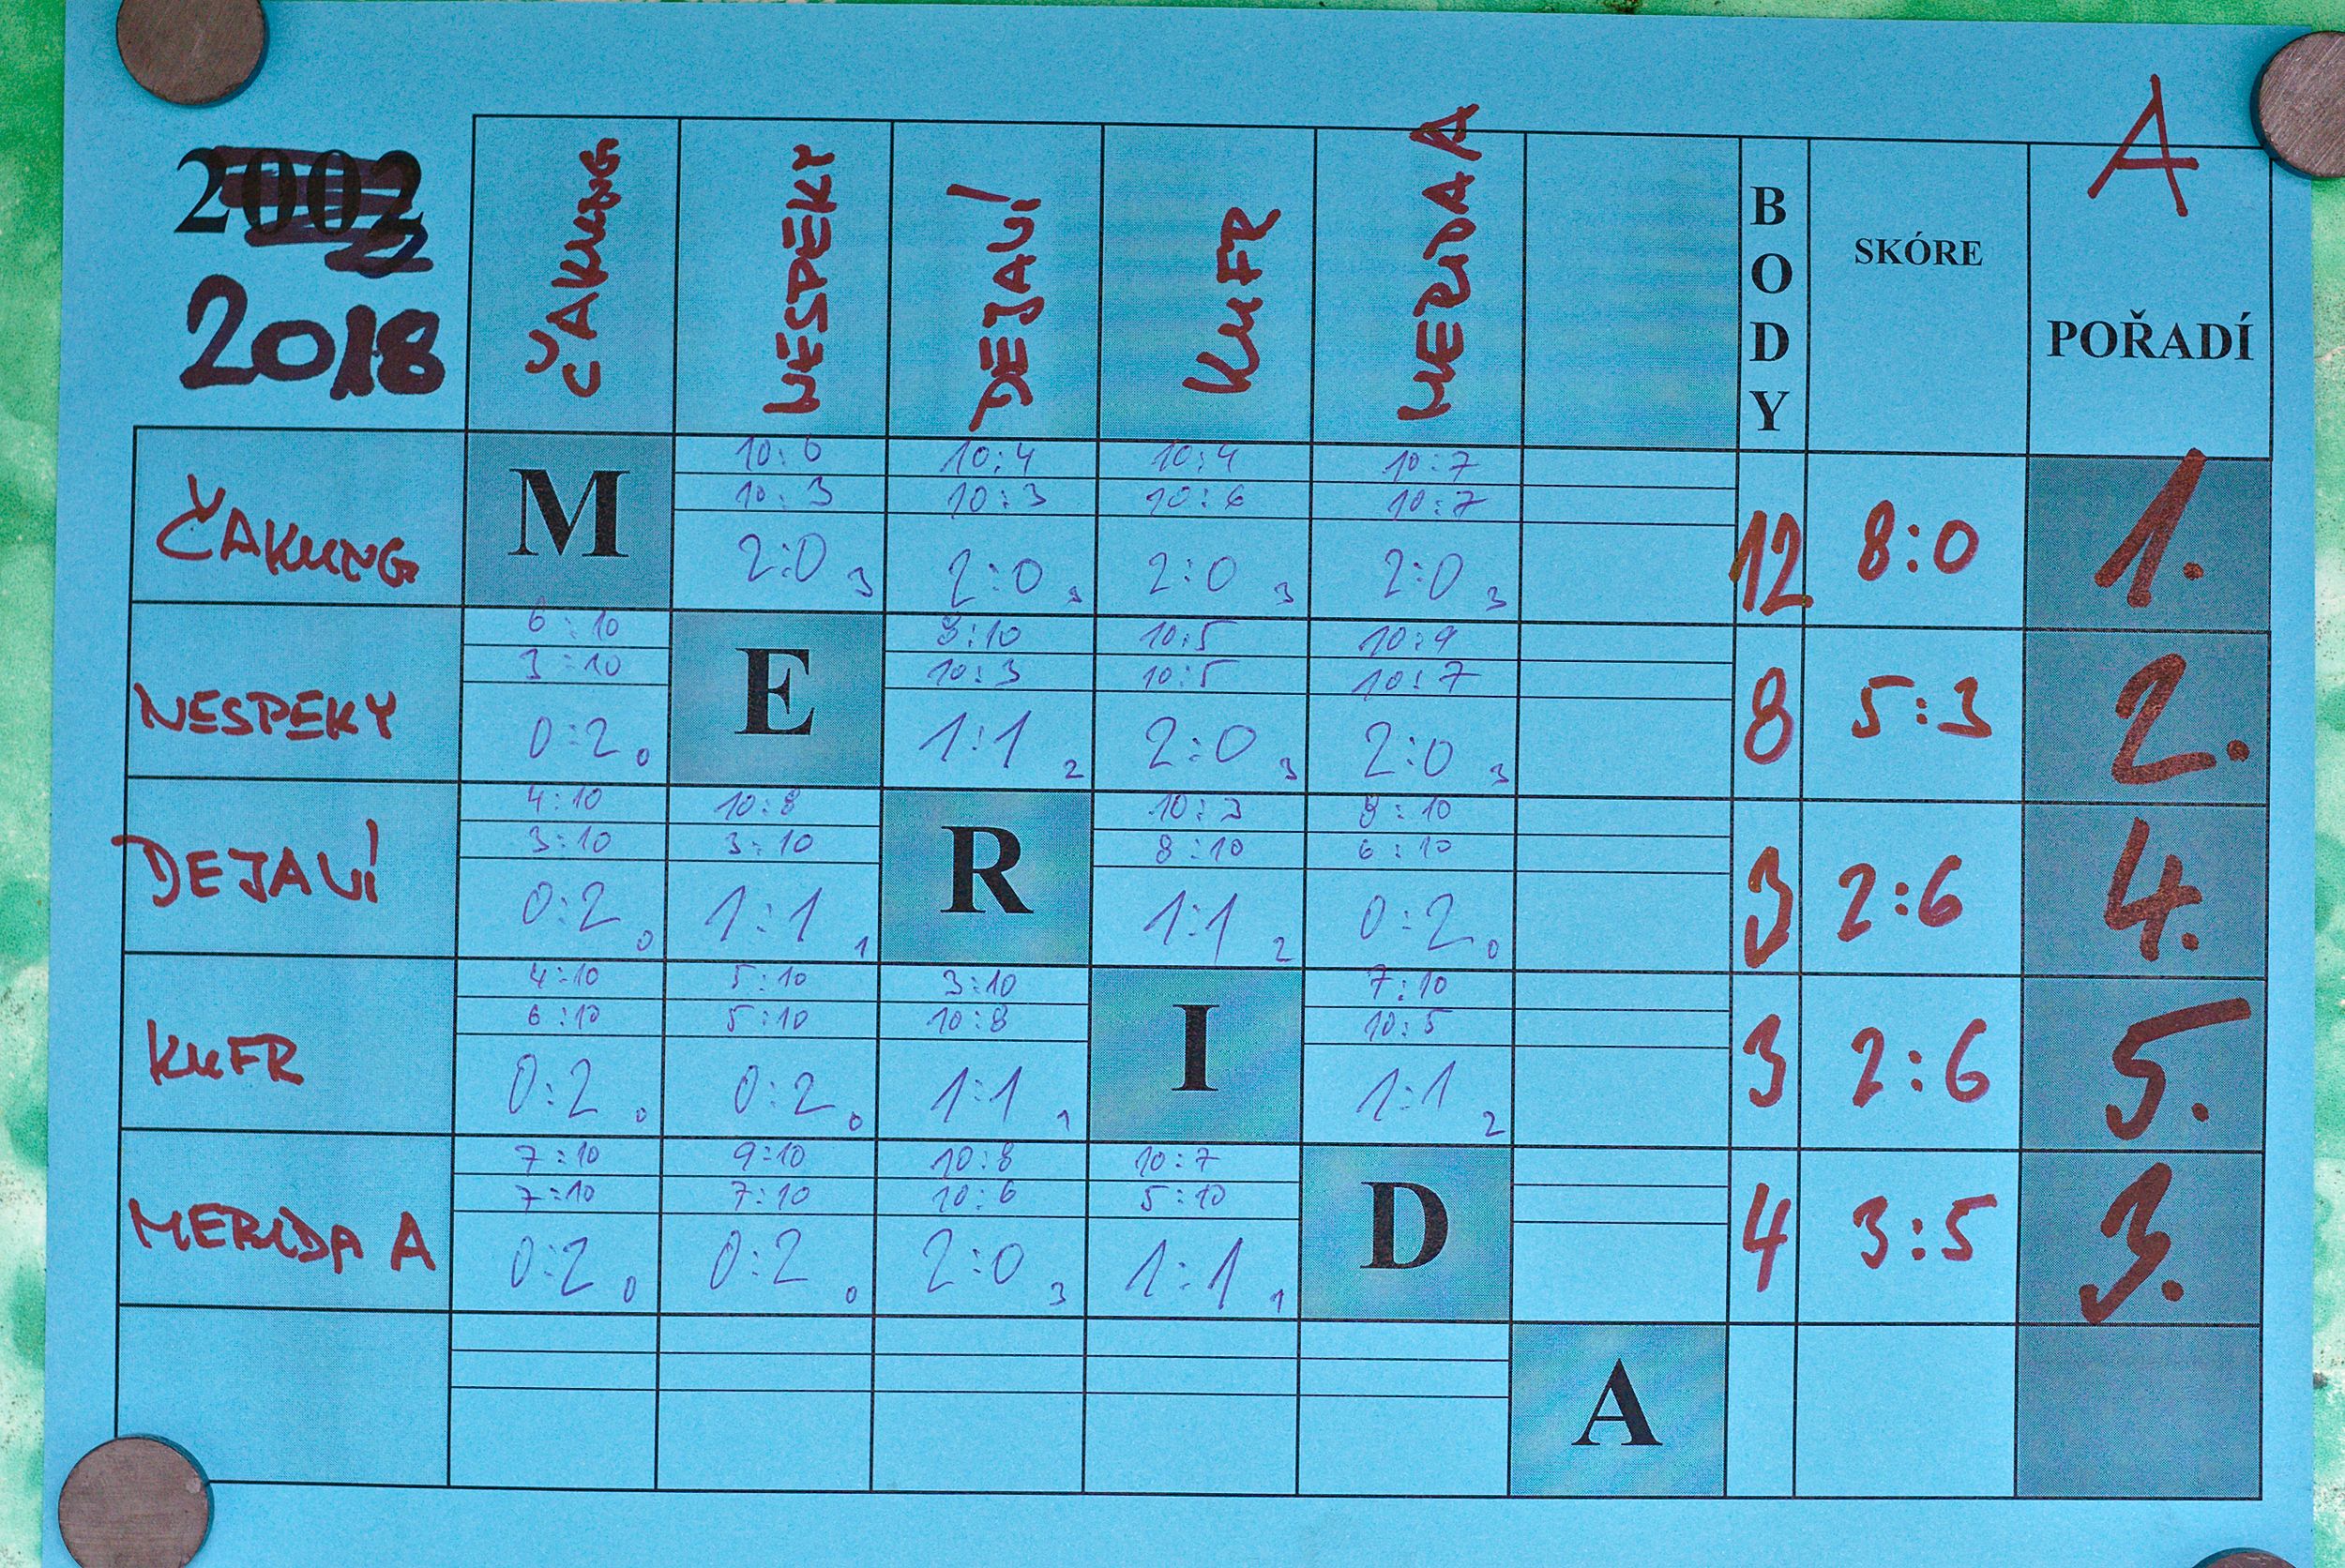 A
2002
2018
ČAKUNG
NESPEKY
DEJAVÍ
KUFR
MERIDA A
BODY
SKÓRE
POŘADÍ
ČAKUNG M 10:6 10:4 10:4 10:7
10:3 10:3 10:6 10:7
2:0 3 2:0 3 2:0 3 2:0 3 12 8:0 1.
NESPEKY 6:10 E 8:10 10:5 10:9
3:10 10:3 10:5 10:7
0:2 0 1:1 2 2:0 3 2:0 3 8 5:3 2.
DEJAVÍ 4:10 10:8 R 10:3 8:10
3:10 3:10 8:10 6:10
0:2 0 1:1 1 1:1 2 0:2 0 3 2:6 4.
KUFR 4:10 5:10 3:10 I 7:10
6:10 5:10 10:8 10:5
0:2 0 0:2 0 1:1 1 1:1 2 3 2:6 5.
MERIDA A 7:10 9:10 10:8 10:7 D
7:10 7:10 10:6 5:10
0:2 0 0:2 0 2:0 3 1:1 1 4 3:5 3.
A